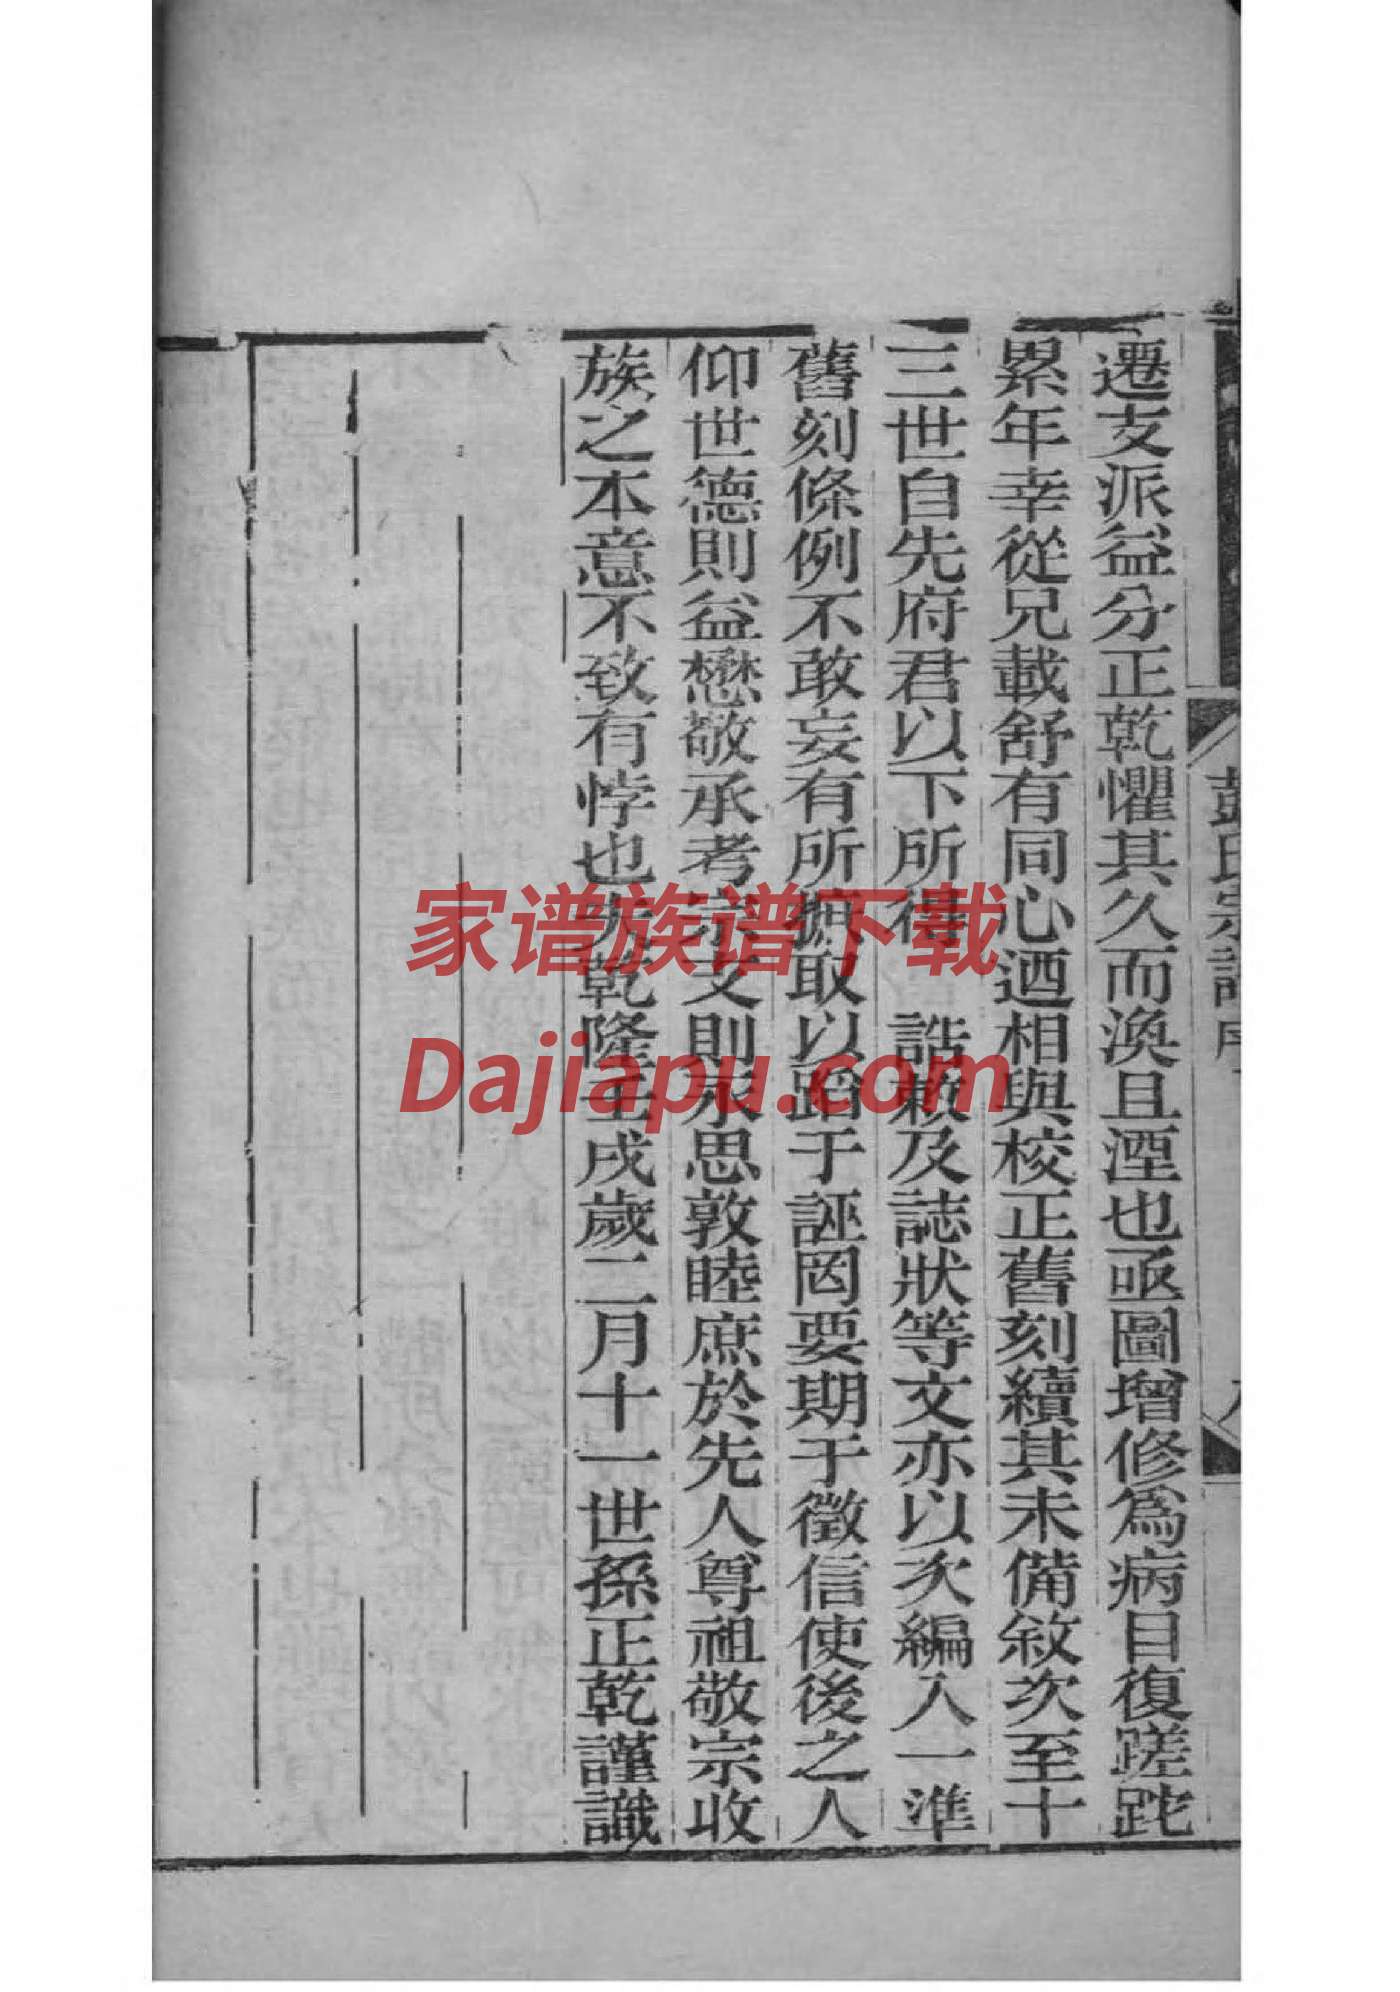 遷支派益分正乾懼其久而渙且湮也亟圖增修為病目復蹉跎
累年幸從兄載舒有同心迺相與校正舊刻續其未備敘次至十
三世自先府君以下所得　誥敕及誌狀等文亦以次編入一準
舊刻條例不敢妄有所摭取以蹈于誣罔要期于徵信使後之人
仰世德則益懋敬承考宗支則永思敦睦庶於先人尊祖敬宗收
族之本意不致有悖也夫乾隆壬戌歲二月十一世孫正乾謹識
彭氏宗譜序
家谱族谱下载
Dajiapu.com